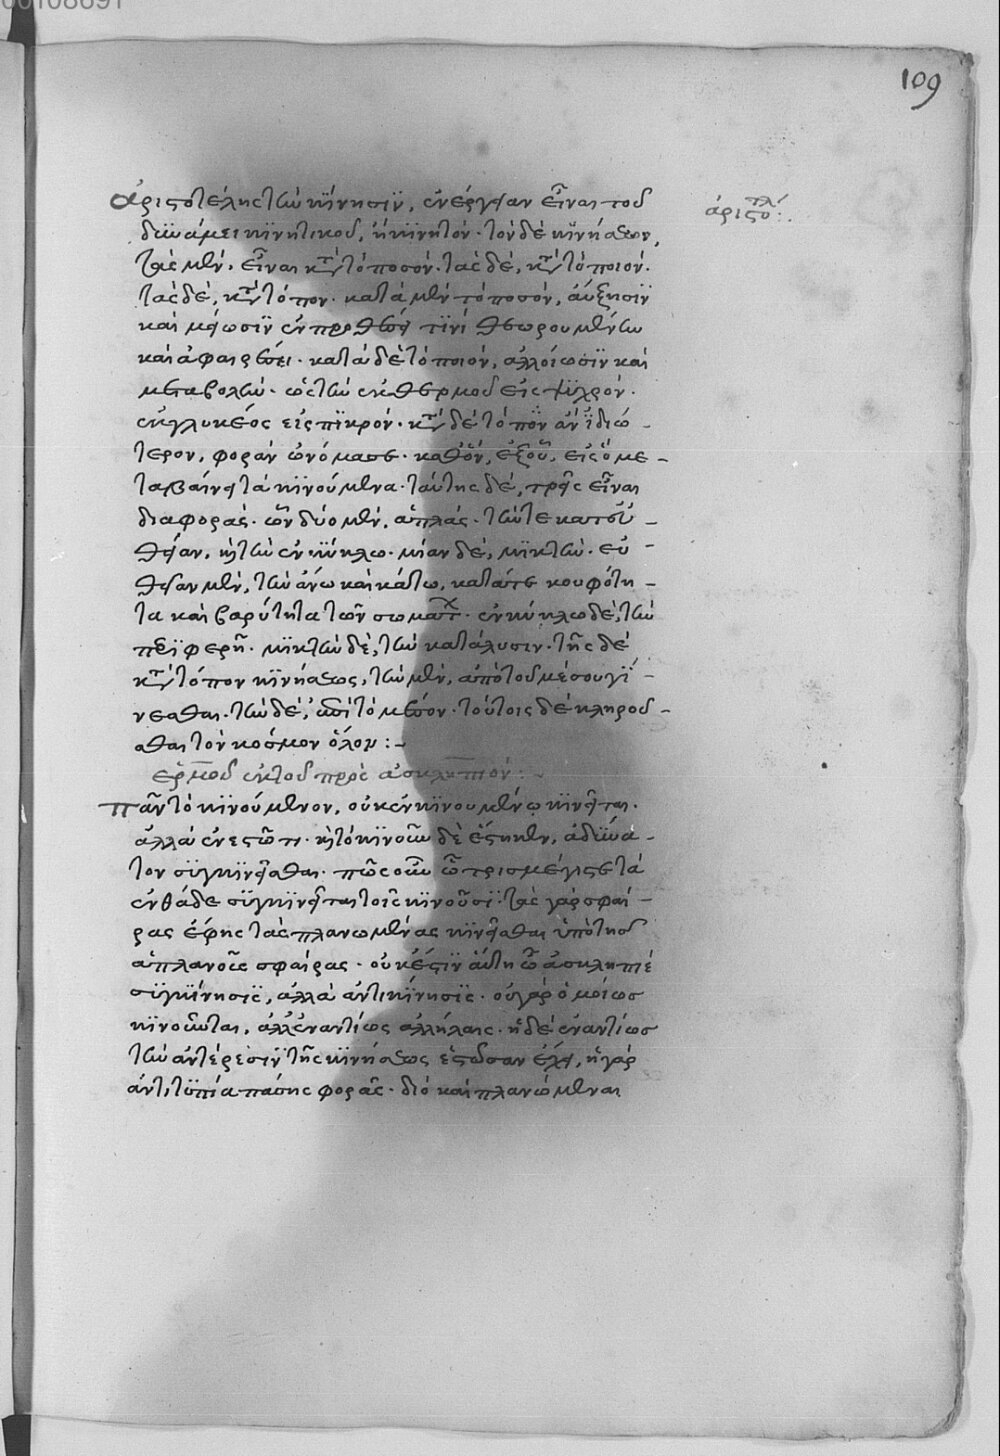 00108691
109
ἀριστοτέλης τὴν κίνησϊν, ἐνέργειαν εἶναι τοῦ
δυνάμει κινητικοῦ, ἢ κινητόν· τῶν δὲ κινήσεων,
τὰς μὲν, εἶναι κατὰ τὸ ποσόν· τὰς δὲ, κατὰ τὸ ποιόν·
τὰς δὲ, κατὰ τὸ που· κατὰ μὲν τὸ ποσὸν, αὔξησϊν
καὶ μείωσϊν ἐν προσθέσει τϊνὶ θεωρουμένην
καὶ ἀφαιρέσει· κατὰ δὲ τὸ ποιὸν, ἀλλοίωσϊν καὶ
μεταβολὴν· ὡς τὴν ἐκ θερμοῦ εἰς ψϋχρόν·
ἐκ γλυκέος εἰς πϊκρόν· κατὰ δὲ τὸ ποῦ ἂν ἰδιώ-
τερον, φορὰν ὠνόμασε· καθ' ὃν, ἐξ οὗ, εἰς ὃ με-
ταβαίνει τὰ κϊνούμενα· ταύτης δὲ, τρεῖς εἶναι
διαφοράς· ὧν δύο μὲν, ἁπλάς· τήν τε κατ' εὐ-
θεῖαν, καὶ τὴν ἐν κύκλω· μίαν δὲ, μϊκτὴν· εὐ-
θεῖαν μὲν, τὴν ἄνω καὶ κάτω, κατά τε κουφότη-
τα καὶ βαρύτητα τῶν σωμάτων· ἐν κύκλω δὲ, τὴν
περϊφερῆ· μϊκτὴν δὲ, τὴν κατάλυσιν· τῆς δὲ
κατὰ τόπον κϊνήσεως, τὴν μὲν, ἀπὸ τοῦ μέσου γί-
νεσθαι· τὴν δὲ, ἐπὶ τὸ μέσον· τούτοις δὲ πληροῦ-
σθαι τὸν κόσμον ὅλον :-
ἑρμοῦ ἐκ τοῦ πρὸς ἀσκληπιόν :-
πᾶν τὸ κϊνούμενον, οὐκ ἐν κϊνουμένω κϊνεῖται·
ἀλλὰ ἐν ἑστῶτι· καὶ τὸ κϊνοῦν δὲ ἕστηκεν, ἀδύνα-
τον συγκϊνεῖσθαι· πῶς οὖν ὦ τρισμέγιστε τὰ
ἐνθάδε σϋγκϊνεῖται τοῖς κϊνοῦσϊ· τὰς γὰρ σφαί-
ρας ἔφης τὰς πλανωμένας κϊνεῖσθαι ὑπὸ τῆς
ἀπλανοῦς σφαίρας· οὐκ ἔστϊν αὕτη ὦ ἀσκληπιὲ
σϋγκίνησϊς, ἀλλὰ ἀντικίνησϊς· οὐ γὰρ ὁμοίως
κϊνοῦνται, ἀλλ' ἐναντίως ἀλλήλαις· ἡ δὲ ἐναντίωσ
τὴν ἀντέρεσϊν τῆς κϊνήσεως ἑστῶσαν ἔχει, ἡ γὰρ
ἀντιτϋπία πάσης φορᾶς· διὸ καὶ πλανώμεναι
ἀριστοτέλ:.